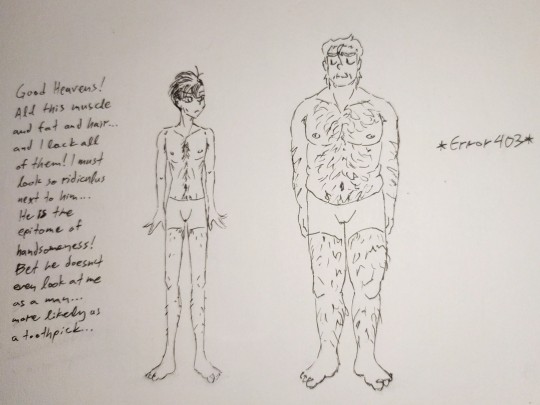 Good Heavens!
All this muscle
and fat and hair...
and I lack all
of them! I must
look so ridiculus
next to him...
He is the
epitome of
handsomeness!
Bet he doesn't
even look at me
as a man...
more likely as
a toothpick...
*Error 403*